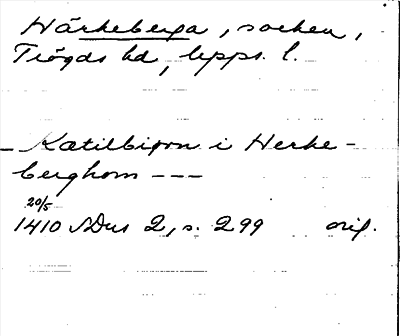 Härkeberga, socken,
Trögds hd, Upps. l.
- Katilbiorn i Herke-
berghom ---
20/5
1410 SDns 2, s. 299 orig.